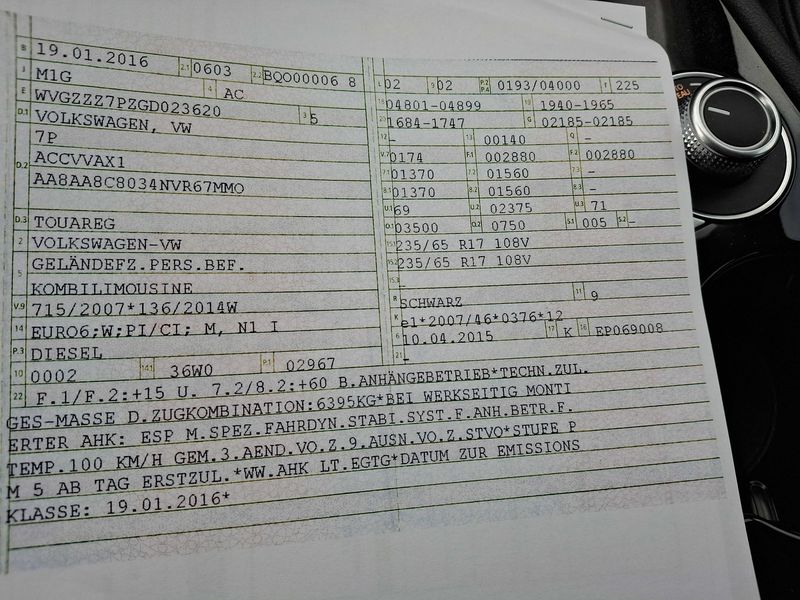 B 19.01.2016 2.1 0603 2.2 BQO00006 8
J M1G 4 AC
E WVGZZZ7PZGD023620 3 5
D.1 VOLKSWAGEN, VW
7P
D.2 ACCVVAX1
AA8AA8C8034NVR67MMO
D.3 TOUAREG
2 VOLKSWAGEN-VW
5 GELÄNDEFZ.PERS.BEF.
KOMBILIMOUSINE
V.9 715/2007*136/2014W
14 EURO6;W;PI/CI; M, N1 I
P.3 DIESEL
10 0002 14.1 36W0 P.1 02967
L 02 9 02 P.2 P.4 0193/04000 T 225
18 04801-04899 19 1940-1965
20 1684-1747 G 02185-02185
12 - 13 00140 Q -
V.7 0174 F.1 002880 F.2 002880
7.1 01370 7.2 01560 7.3 -
8.1 01370 8.2 01560 8.3 -
U.1 69 U.2 02375 U.3 71
O.1 03500 O.2 0750 S.1 005 S.2 -
15.1 235/65 R17 108V
15.2 235/65 R17 108V
15.3 -
R SCHWARZ 11 9
K e1*2007/46*0376*12
6 10.04.2015 17 K 16 EP069008
21 -
22 F.1/F.2:+15 U. 7.2/8.2:+60 B.ANHÄNGEBETRIEB*TECHN.ZUL.
GES-MASSE D.ZUGKOMBINATION:6395KG*BEI WERKSEITIG MONTI
ERTER AHK: ESP M.SPEZ.FAHRDYN.STABI.SYST.F.ANH.BETR.F.
TEMP.100 KM/H GEM.3.AEND.VO.Z.9.AUSN.VO.Z.STVO*STUFE P
M 5 AB TAG ERSTZUL.*WW.AHK LT.EGTG*DATUM ZUR EMISSIONS
KLASSE: 19.01.2016*